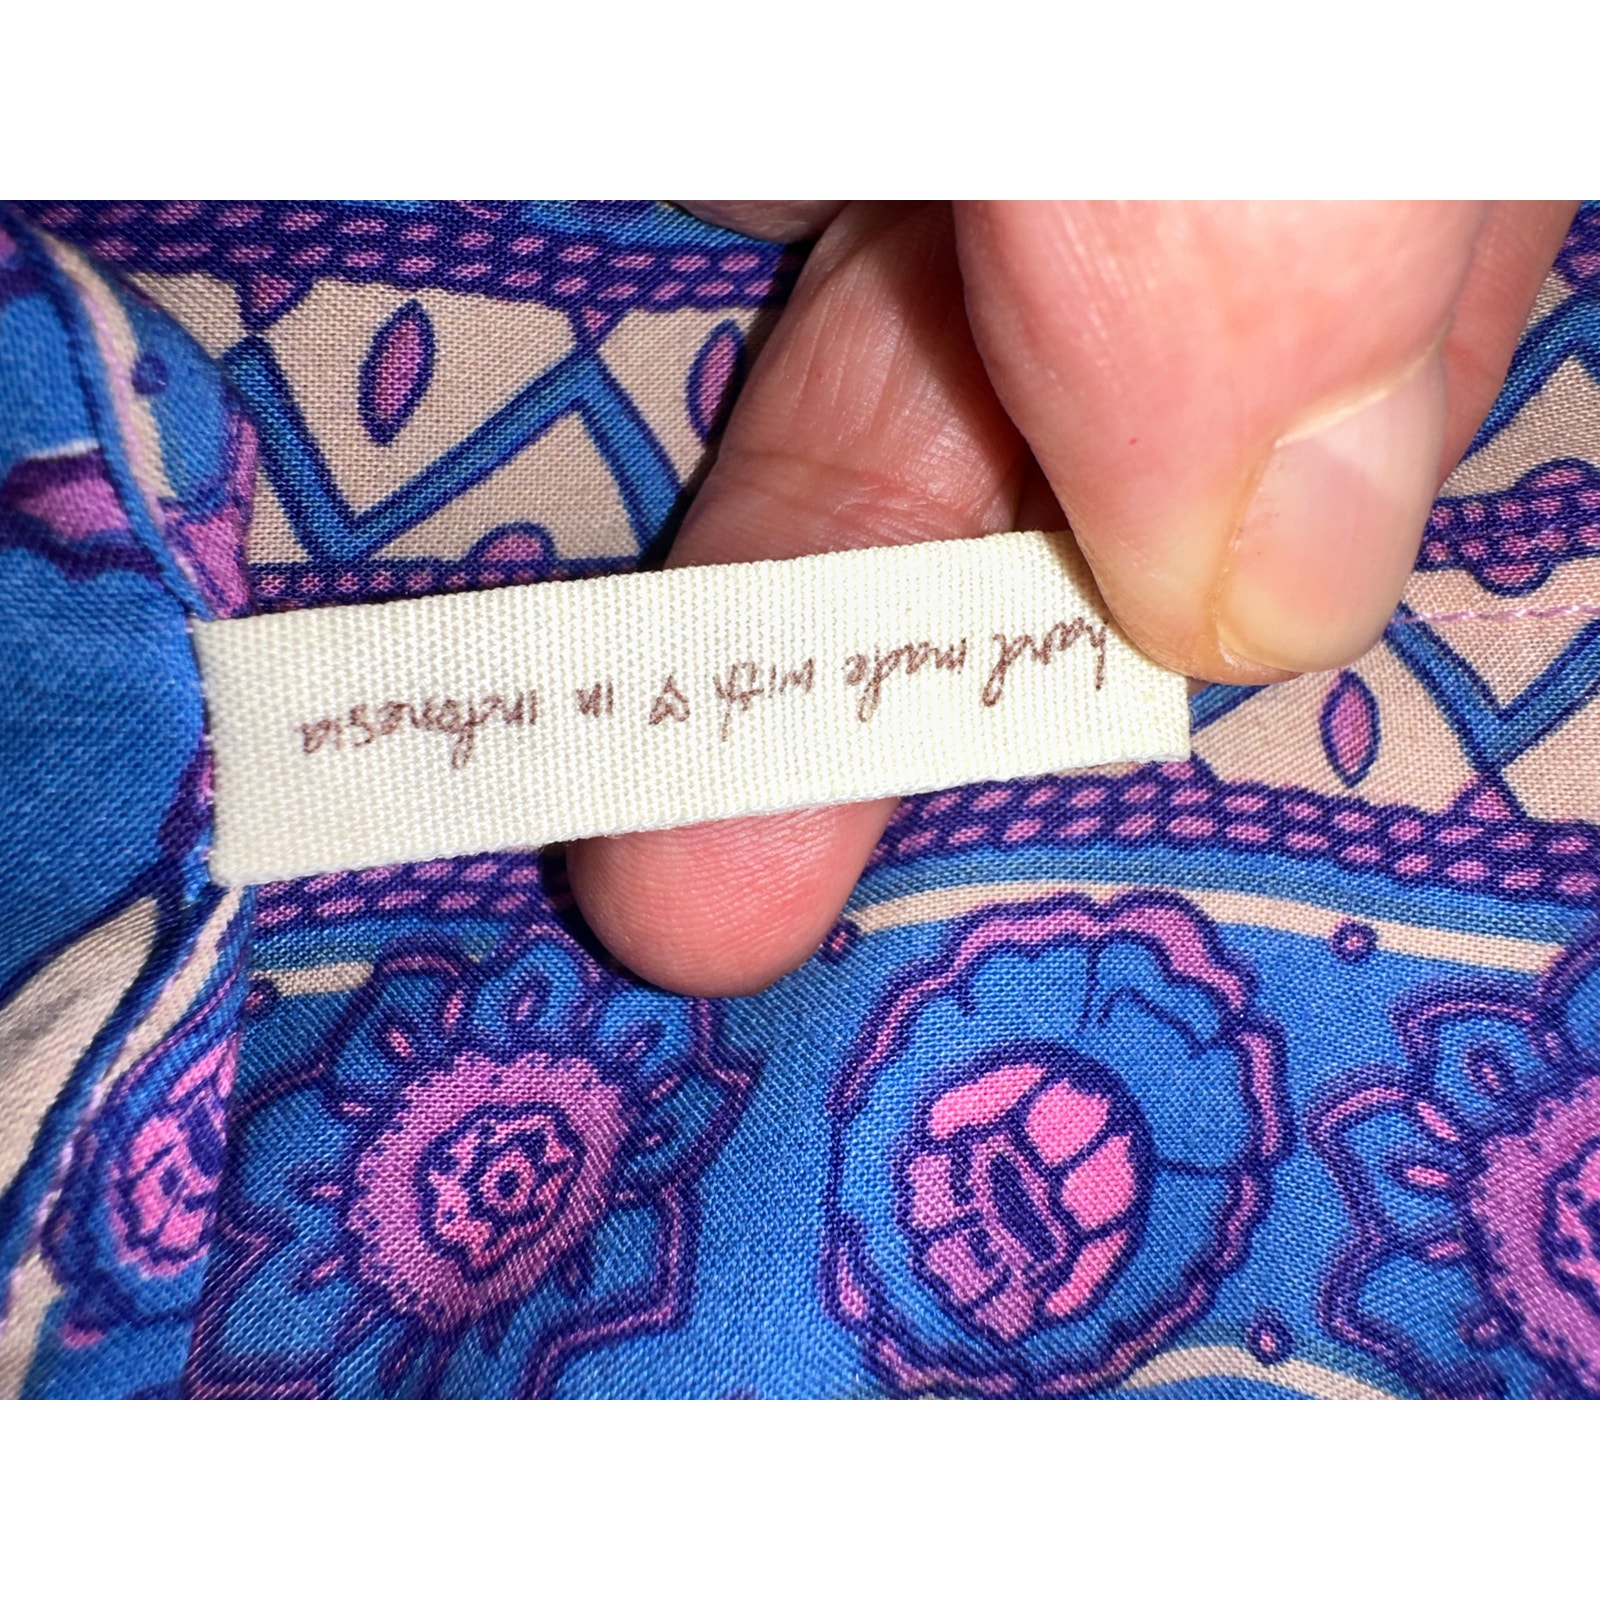 hand made with ♡ in indonesia